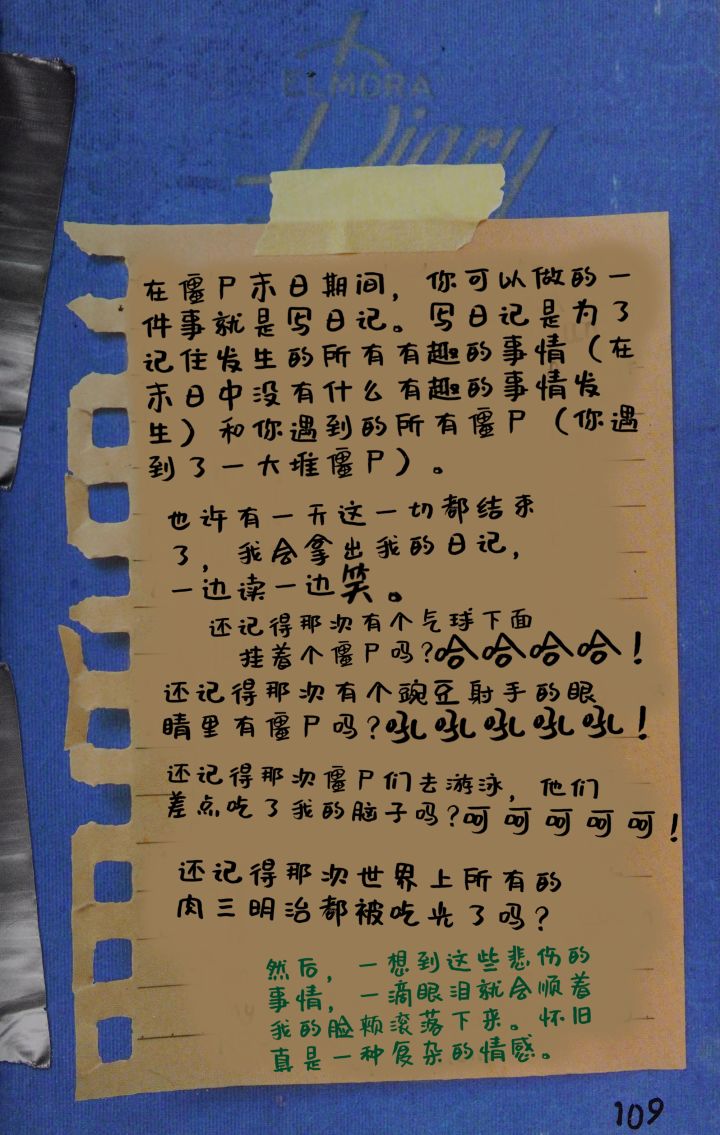 ELMORA
Diary
在僵尸末日期间，你可以做的一
件事就是写日记。写日记是为了
记住发生的所有有趣的事情（在
末日中没有什么有趣的事情发
生）和你遇到的所有僵尸（你遇
到了一大堆僵尸）。
也许有一天这一切都结束
了，我会拿出我的日记，
一边读一边笑。
还记得那次有个气球下面
挂着个僵尸吗？哈哈哈哈！
还记得那次有个豌豆射手的眼
睛里有僵尸吗？吼吼吼吼吼！
还记得那次僵尸们去游泳，他们
差点吃了我的脑子吗？呵呵呵呵呵！
还记得那次世界上所有的
肉三明治都被吃光了吗？
然后，一想到这些悲伤的
事情，一滴眼泪就会顺着
我的脸颊滚落下来。怀旧
真是一种复杂的情感。
109